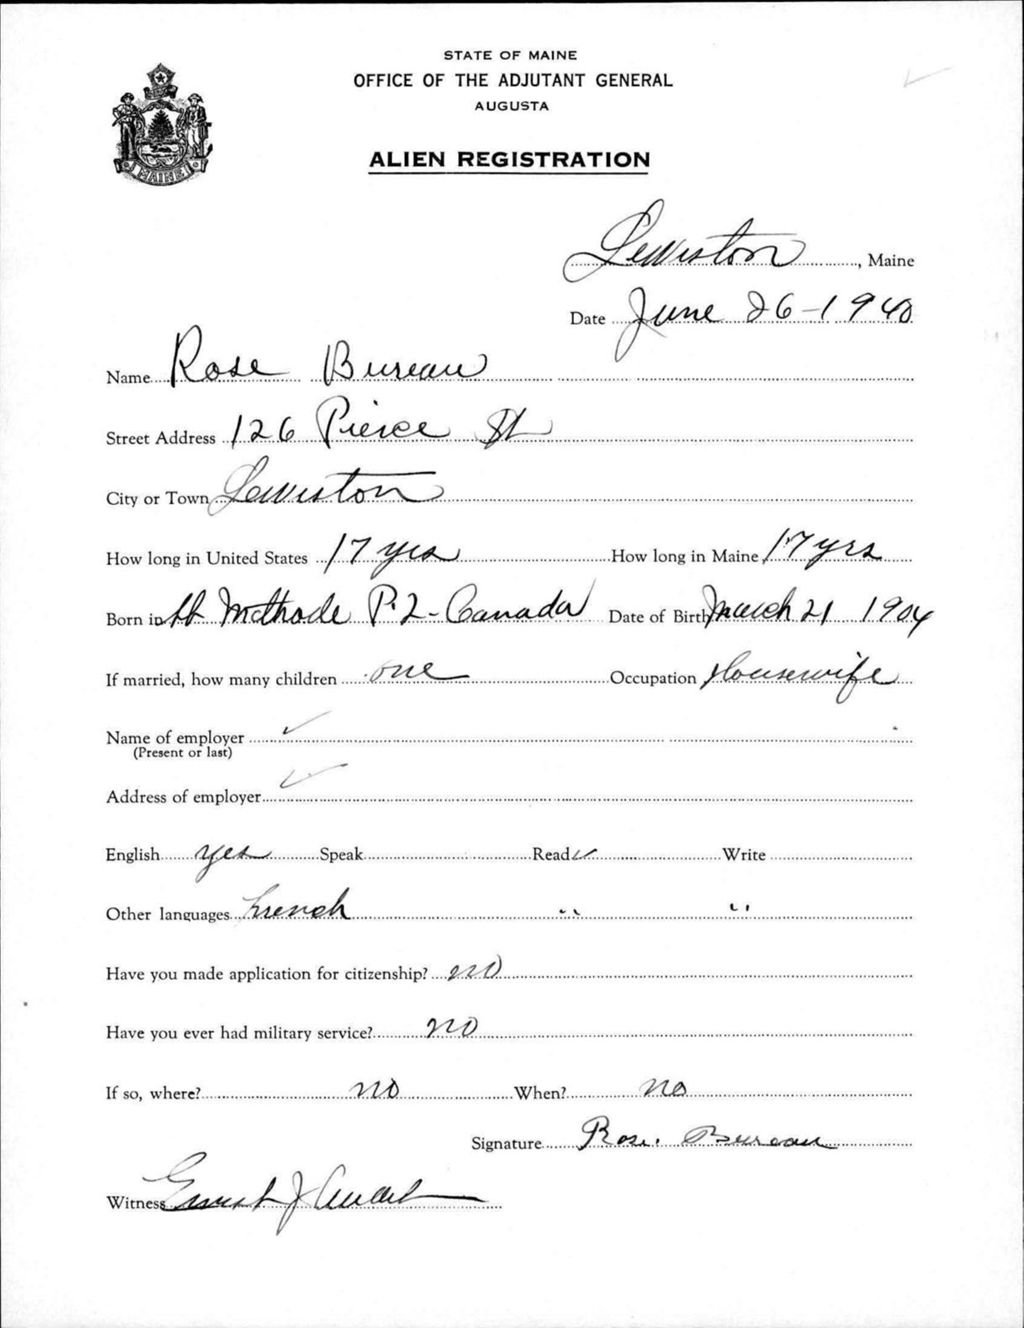 STATE OF MAINE
OFFICE OF THE ADJUTANT GENERAL
AUGUSTA
MAINE
ALIEN REGISTRATION
Lewiston, Maine
Date June 26-1940
Name Rose Bureau
Street Address 126 Pierce St
City or Town Lewiston
How long in United States 17 yrs How long in Maine 17 yrs
Born in St Methode P.Q-Canada Date of Birth March 21 1904
If married, how many children one Occupation Housewife
Name of employer ✓
(Present or last)
Address of employer ✓
English yes Speak Read ✓ Write
Other languages French " "
Have you made application for citizenship? no
Have you ever had military service? no
If so, where? no When? no
Signature Rose. Bureau
Witness Ernest J